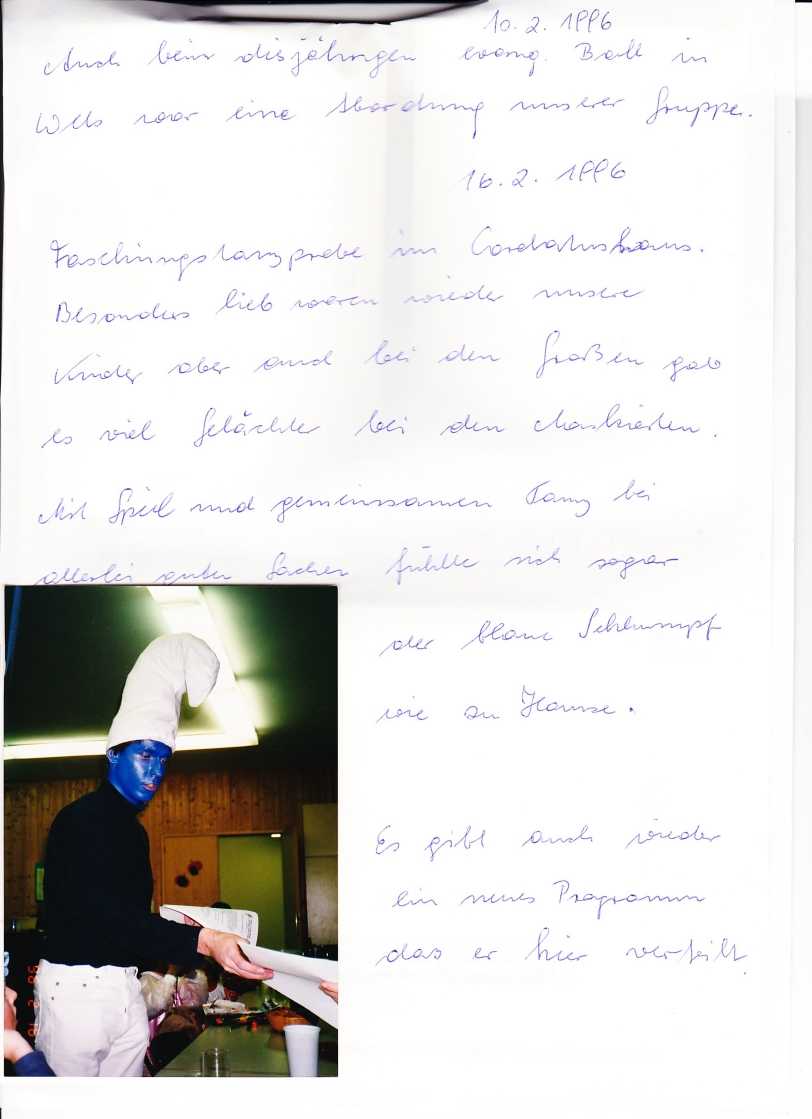 10.2.1996
Auch beim disjährigen evang. Ball in
Wels war eine Abordnung unserer Gruppe.
16.2.1996
Faschingstanzprobe im Cordatushaus.
Besonders lieb waren wieder unsere
Kinder aber auch bei den Großen gab
es viel Gelächter bei den Maskierten.
Mit Spiel und gemeinsamen Tanz bei
allerlei guten Sachen fühlte sich sogar
der blaue Schlumpf
wie zu Hause.
Es gibt auch wieder
ein neues Programm
das er hier verteilt.